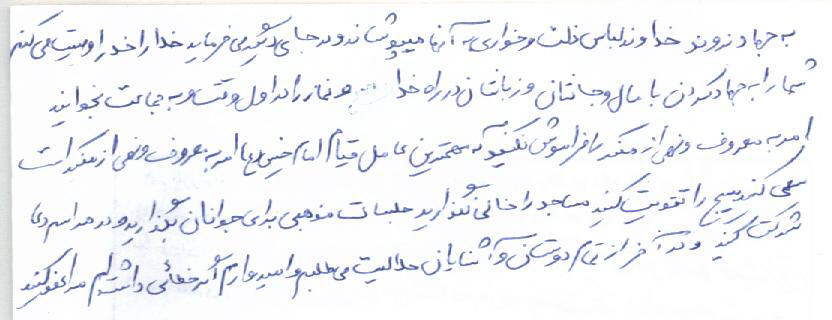 به جهاد نروند خداوند لباس ذلت و خواری به آنها میپوشاند و در جای دیگر می فرماید خدا را خدا را وصیت می کنم
شما را به جهاد کردن با مال و جانتان و زبانتان در راه خدا و نماز را در اول وقت و به جماعت بخوانید
امر به معروف و نهی از منکر را فراموش نکنید که مهمترین عامل قیام امام حسین (ع) امر به معروف و نهی از منکر است
سعی کنید بسیج را تقویت کنید مساجد را خالی نگذارید جلسات مذهبی برای جوانان بگذارید و در مراسم دعا
شرکت کنید و در آخر از تمام دوستان و آشنایان حلالیت می طلبم و امیدوارم اگر خطائی داشته ام مرا عفو کنید